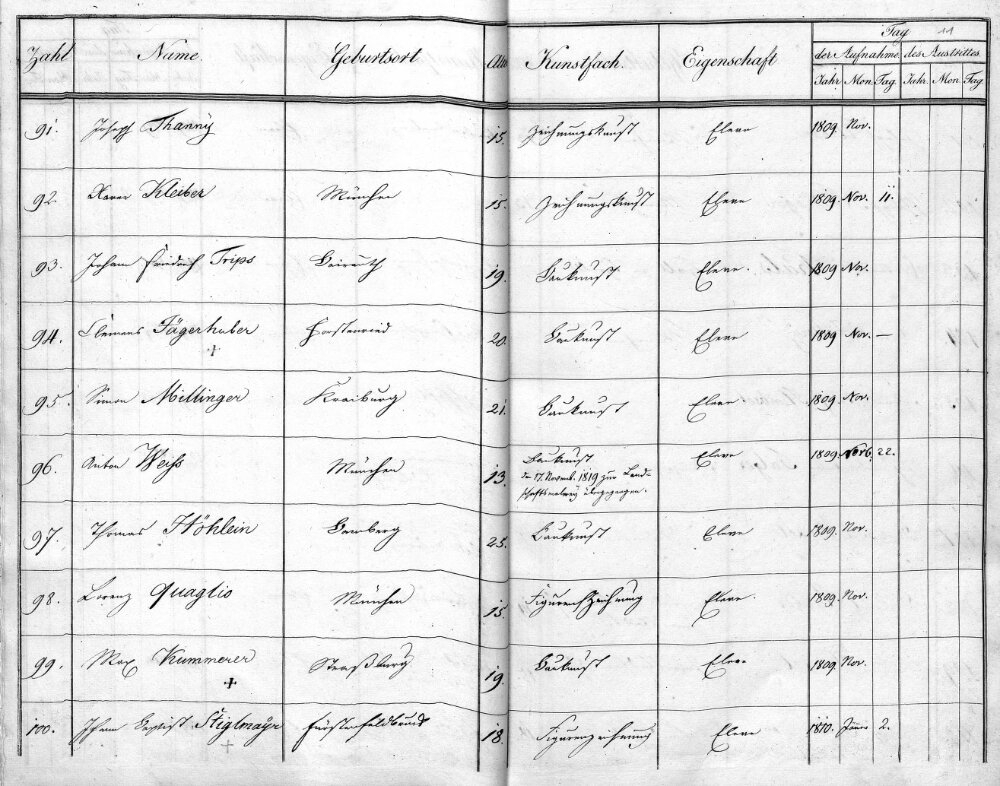 11
Tag
Zahl Name. Geburtsort Alter Kunstfach. Eigenschaft der Aufnahme des Austrittes
Jahr Mon. Tag. Jahr. Mon. Tag
91. Joseph Thanny 15. Zeichnungskunst Eleve 1809. Nov.
92. Xaver Kleiber München 15. Zeichnungskunst Eleve 1809. Nov. 11.
93. Johann Friedrich Trips Baireuth 19. Baukunst Eleve. 1809 Nov.
94. Clemens Jägerhuber Forstenried 20. Baukunst Eleve 1809 Nov. —
+
95. Simon Millinger Kraiburg 21. Baukunst Eleve 1809. Nov.
96. Anton Weiss München 13. Baukunst Eleve 1809. Novb. 22.
den 17. Novemb. 1819 zur Land-
schaftsmalerey übergegangen.
97. Thomas Höhlein Bamberg 25. Baukunst Eleve 1809. Nov.
98. Lorenz Quaglio München 15. Figurenzeichnung Eleve. 1809. Nov.
99. Max Kummerer Straßburg 19. Baukunst Eleve 1809. Nov.
+
100. Johann Baptist Stiglmayr Fürstenfeldbruck 18. Figurenzeichnung Eleve 1810. Jänner 2.
+